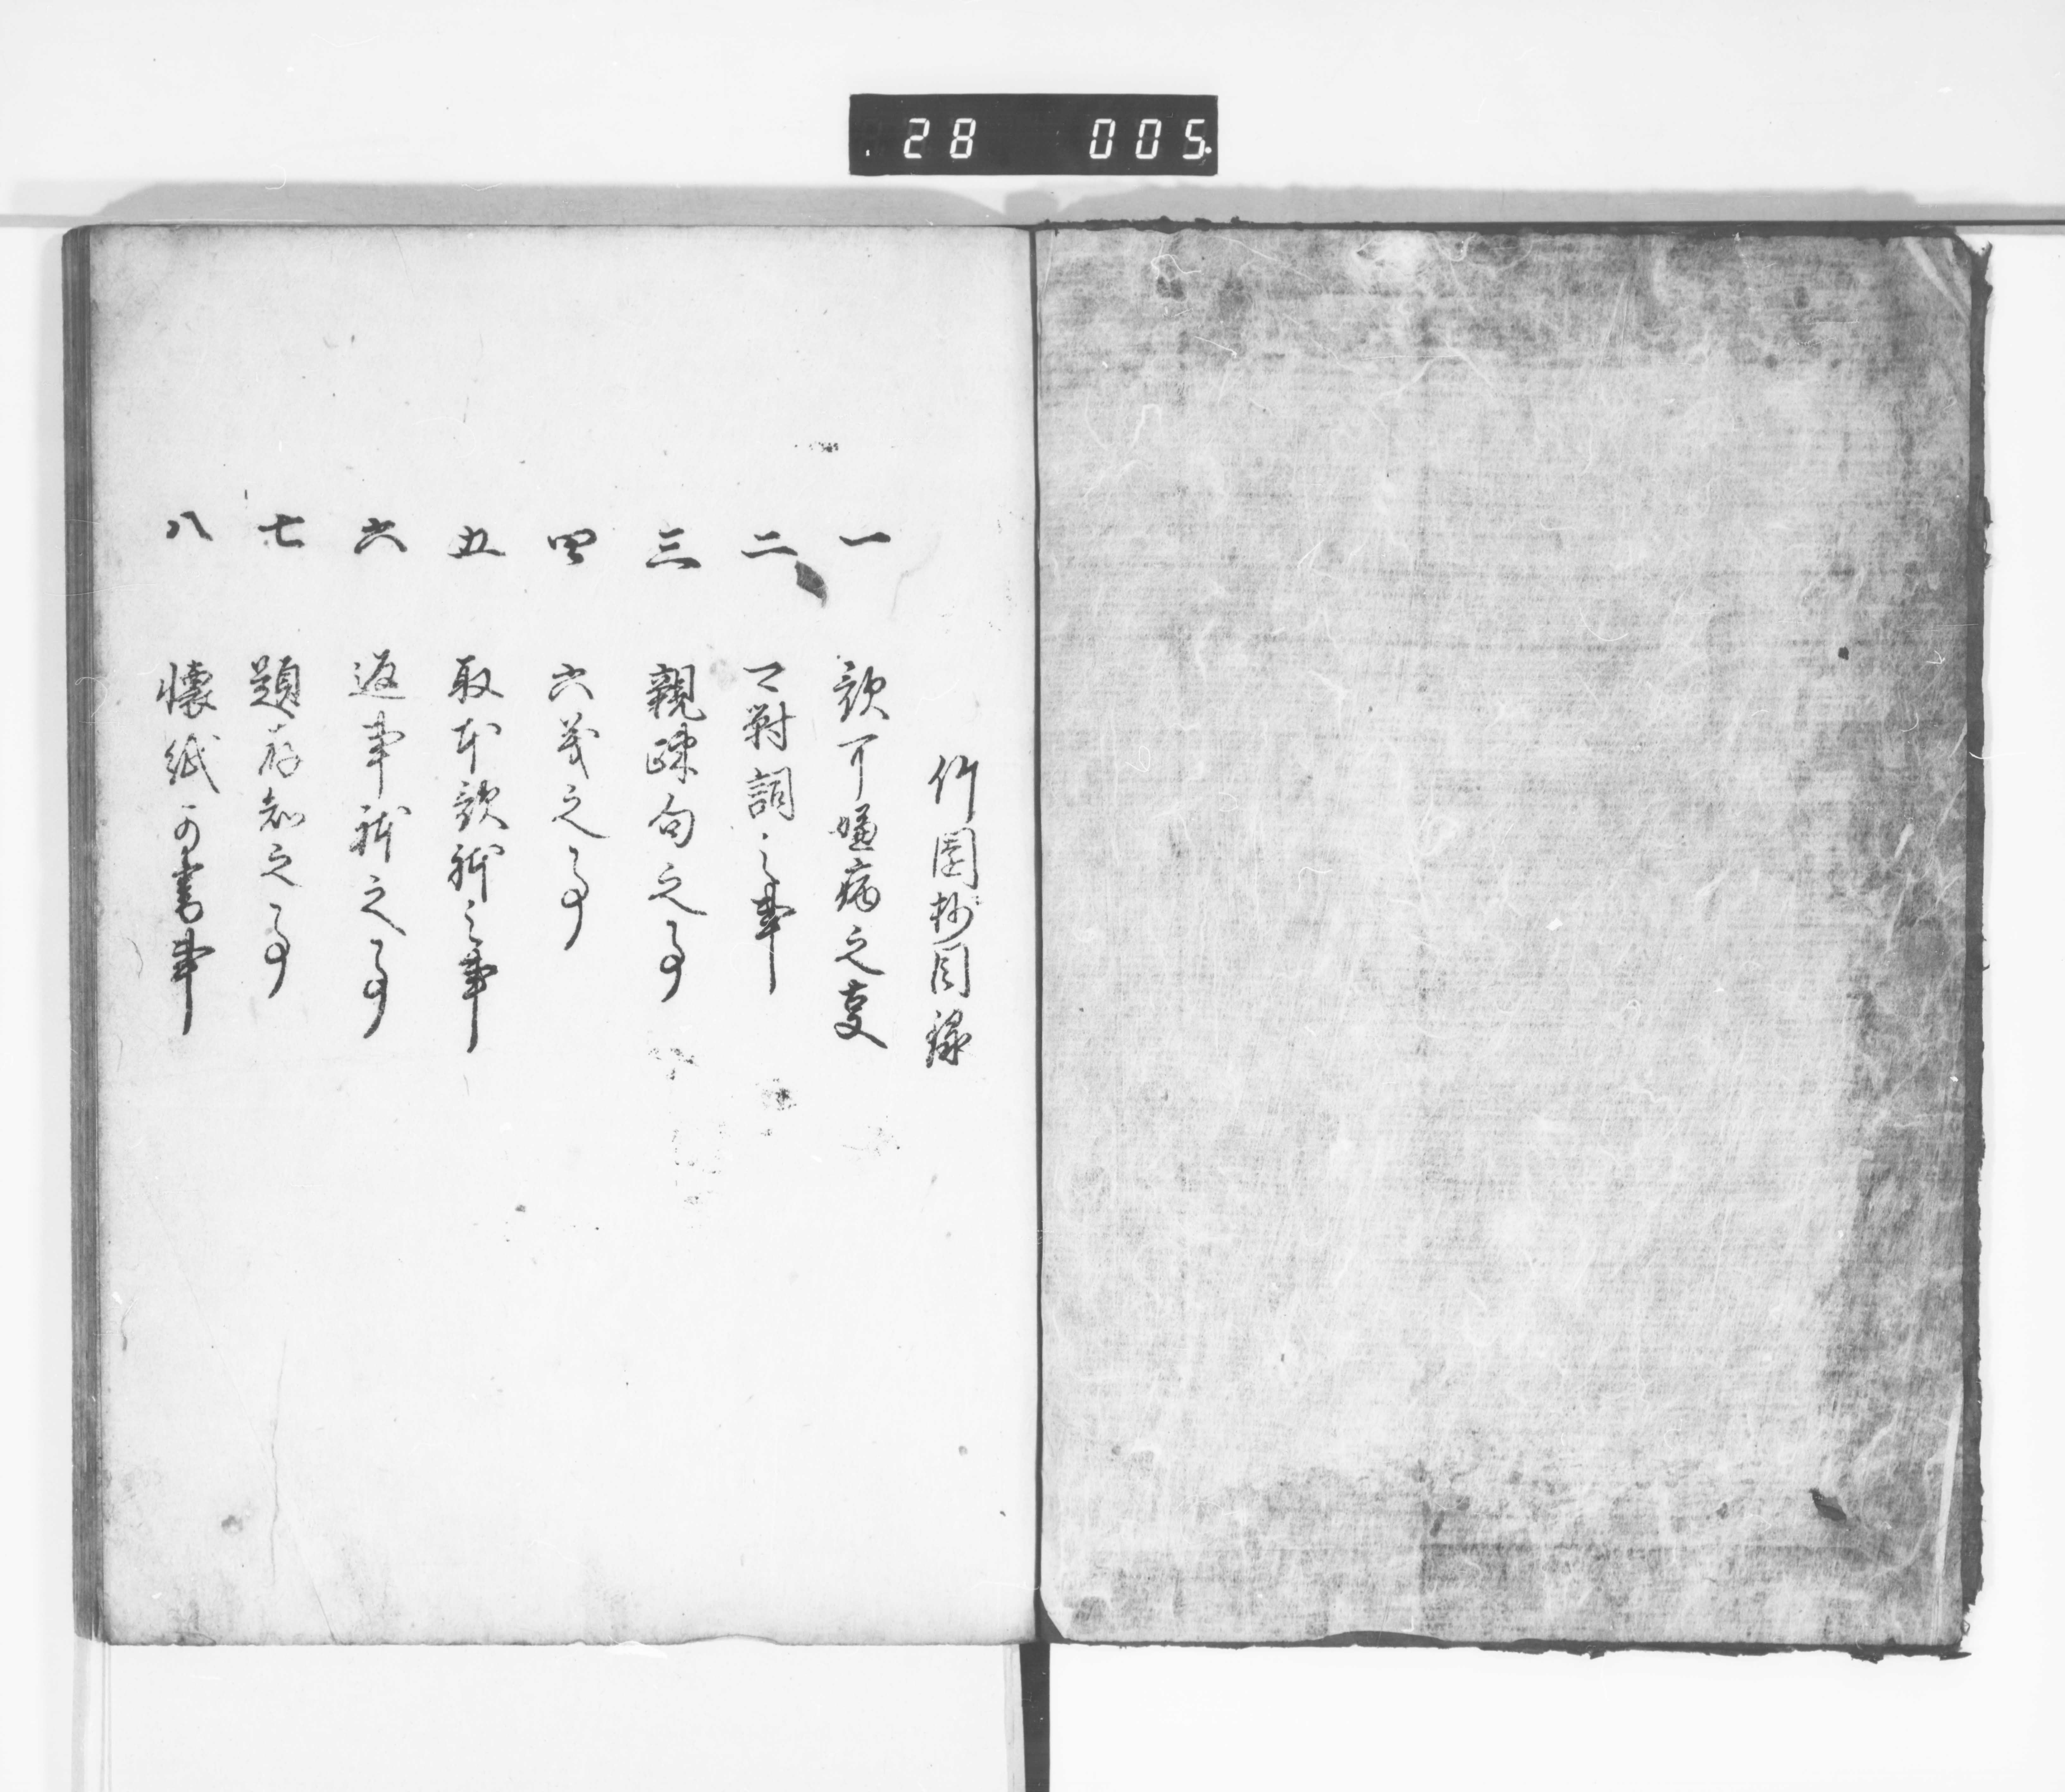 28 005
竹園抄目録
一 歌可嫌病之事
二 可対詞之事
三 親疎句之事
四 六義之事
五 取本歌躰之事
六 返事躰之事
七 題存知之事
八 懐紙可書事